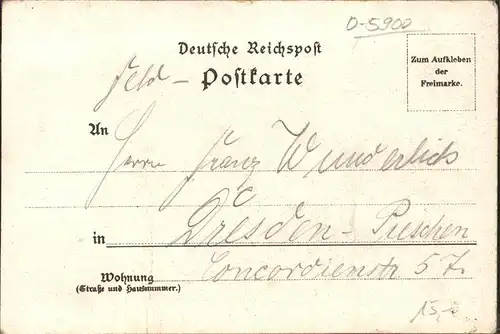 D-5900
Deutsche Reichspost
Feld-Postkarte
Zum Aufkleben
der
Freimarke.
An Herrn Franz Wunderlich
in Dresden-Pieschen
Wohnung Concordienstr 57.
(Straße und Hausnummer.)
15,-